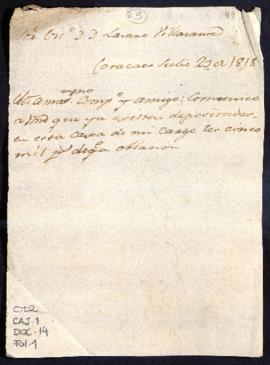 23
Sr. Dn. D. Lázaro Villaraure
Caracas Julio 23 de 1818
Mi amado Compo. y amigo: Comunico
a Vmd que ya existen depositados
en esta casa de mi cargo los cinco
mil ps. de
oblacion
CTD2
CAJ. 1
DOC. 14
FOL 1